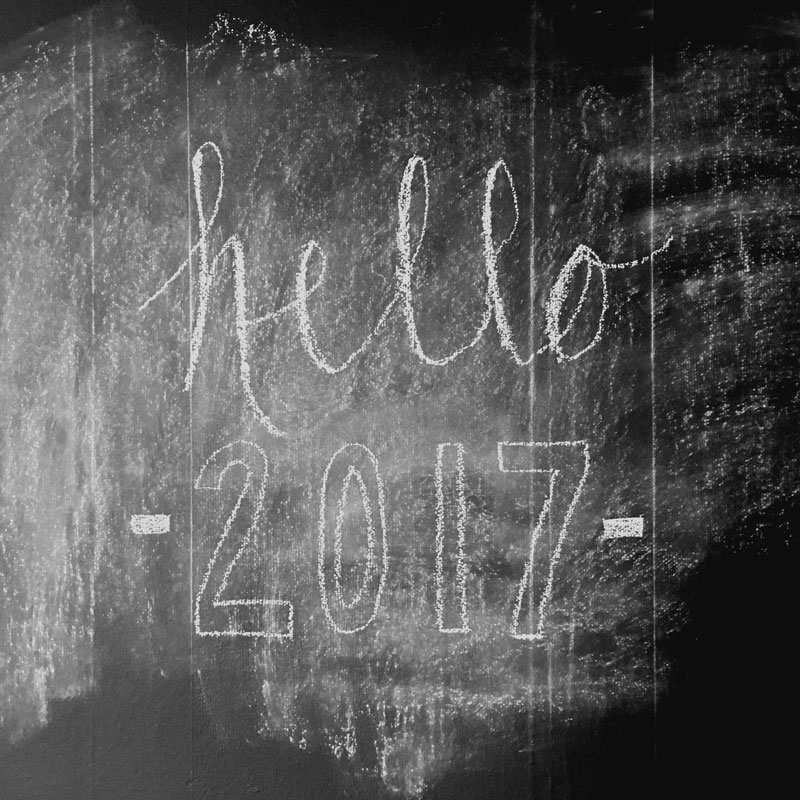 hello
-2017-